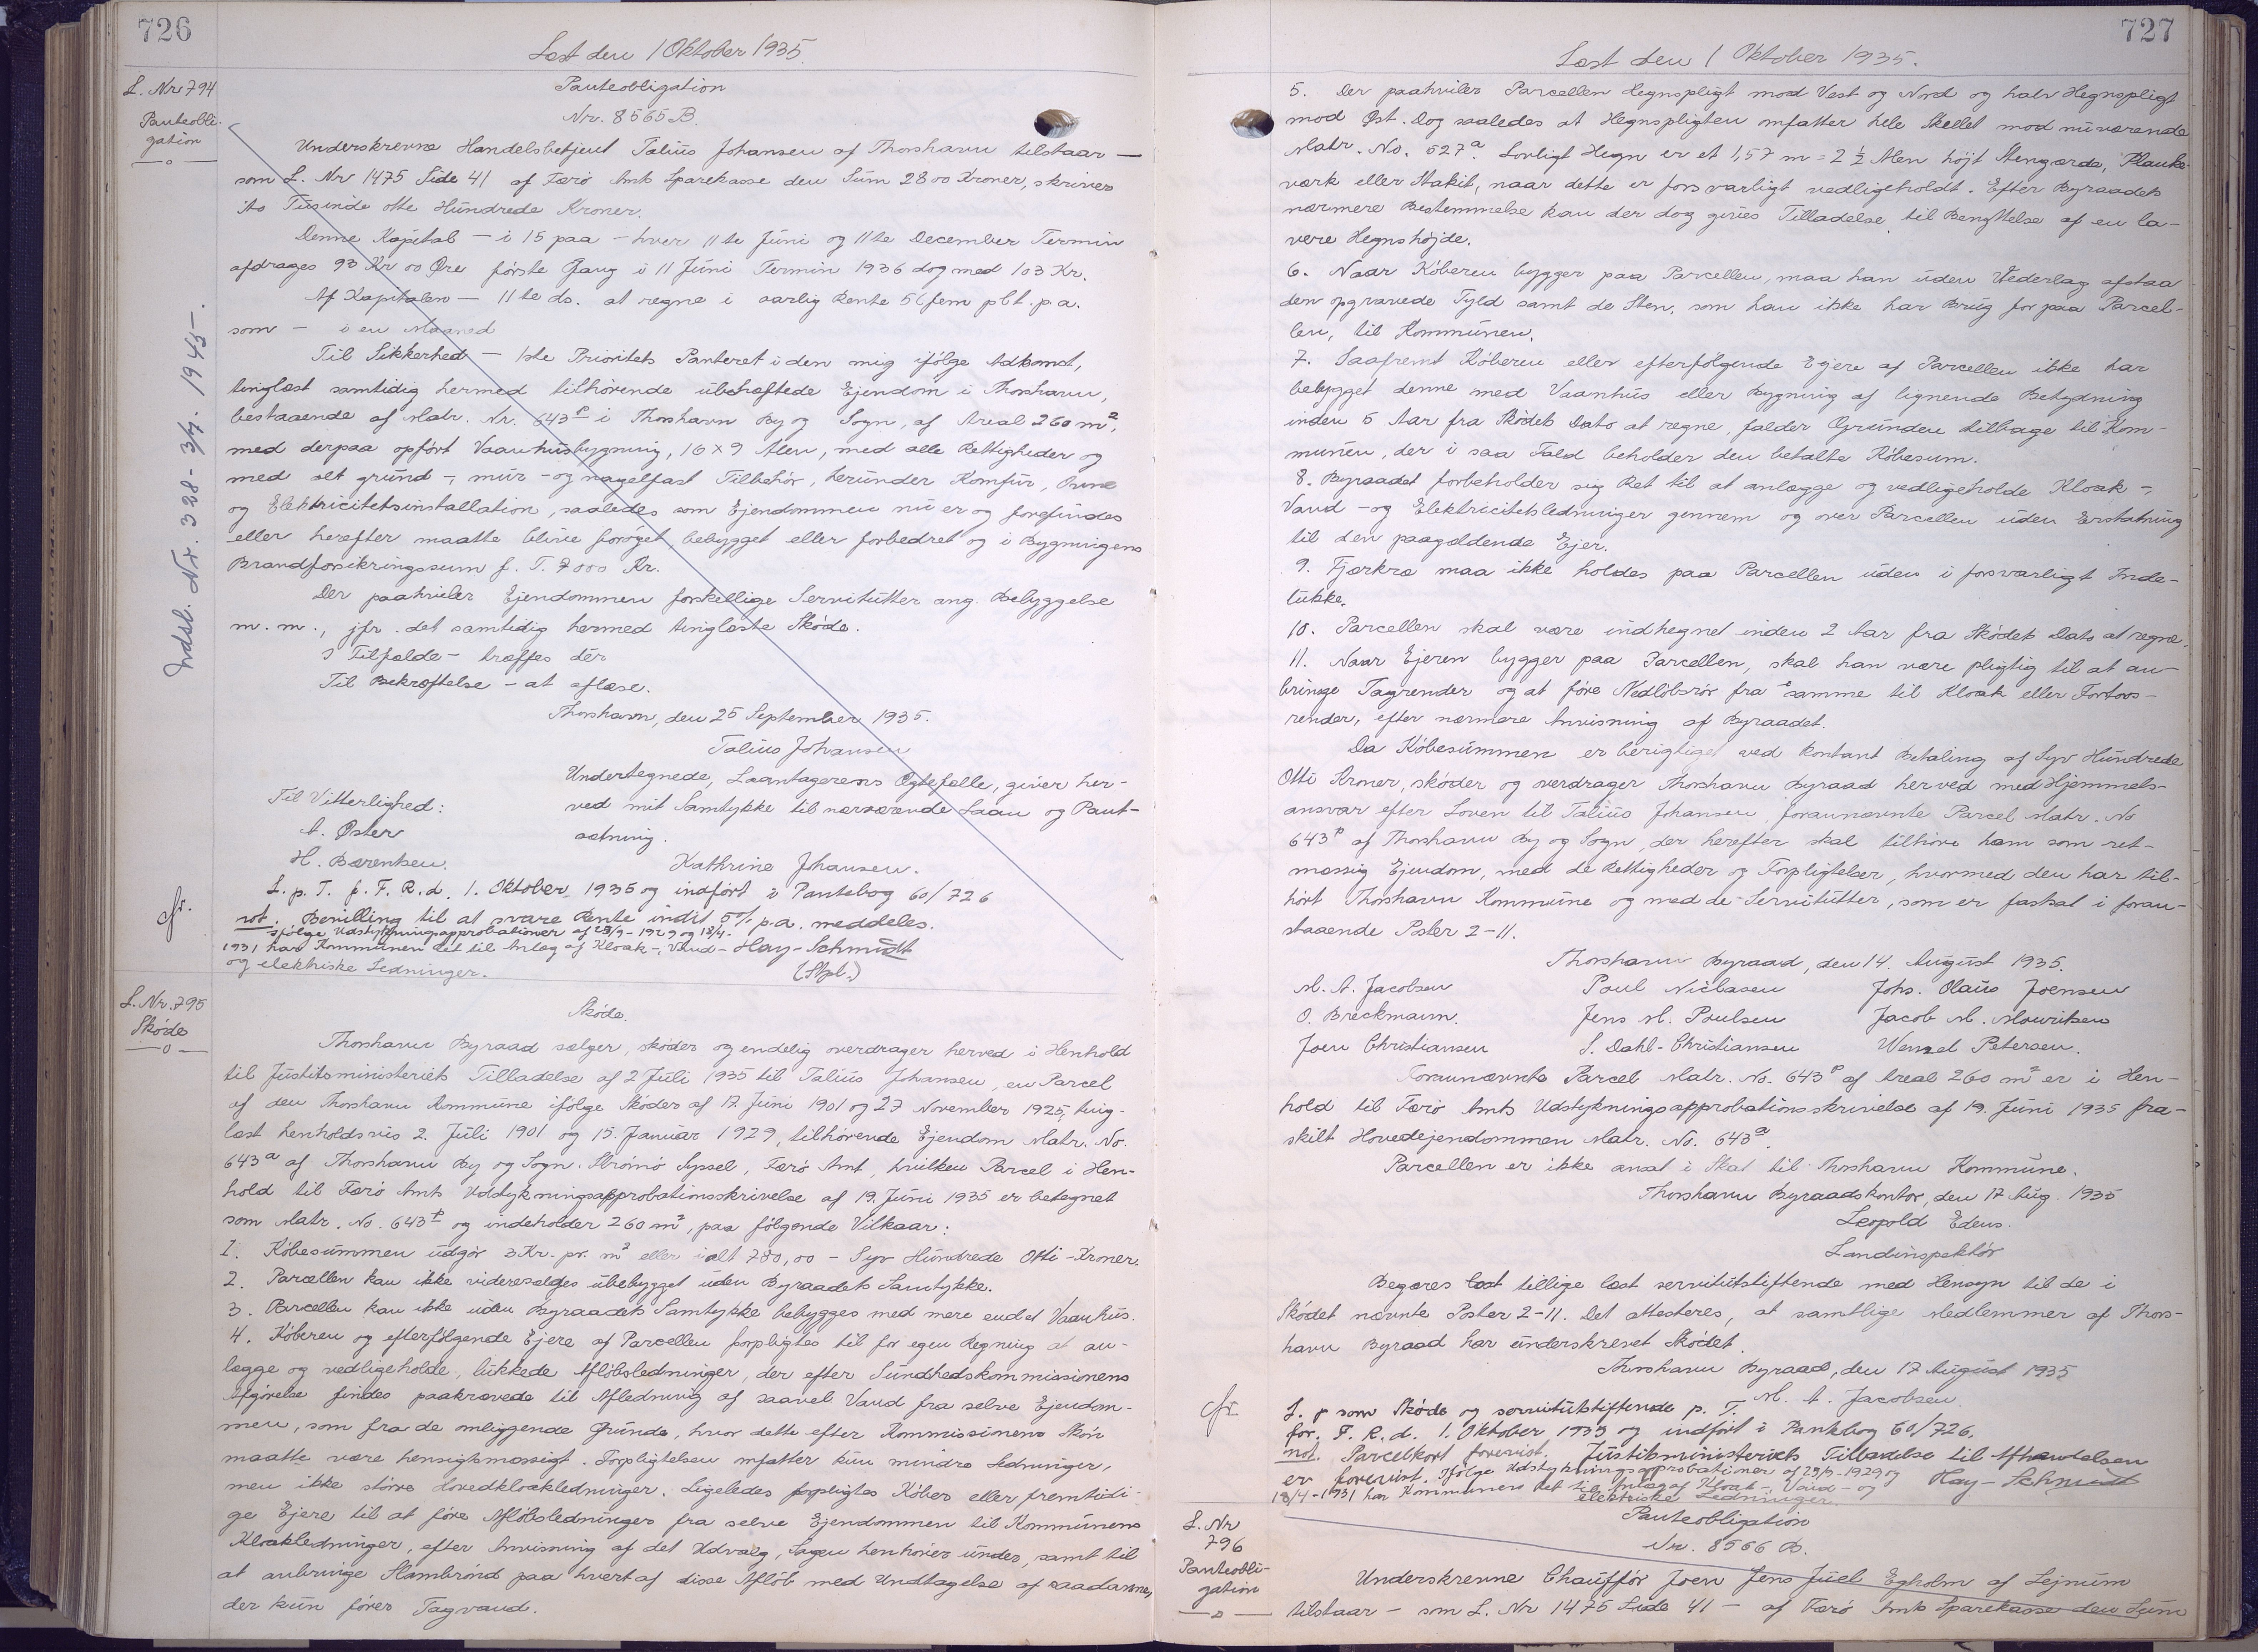 726
Læst den 1 Oktober 1935.
L. Nr 794
Panteobli-
gation
Panteobligation
Nr. 8565 B.
Underskrevne Handelsbetjent Talius Johansen af Thorshavn tilstaar —
som L. Nr 1475 Side 41 af Færö Amts Sparekasse den Sum 2800 Kroner, skriver
to Tusinde otte Hundrede Kroner.
Denne Kapital — i 15 paa — hver 11te Juni og 11te December Termin
afdrages 93 Kr 00 Øre første Gang i 11 Juni Termin 1936 dog med 103 Kr.
Af Kapitalen — 11te ds. at regne i aarlig Rente 5 (fem pCt. p.a.
som — i en Maaned
Til Sikkerhed — 1ste Prioritets Panteret i den mig ifölge Adkomst,
tinglæst samtidig hermed tilhörende ubehæftede Ejendom i Thorshavn,
bestaaende af Matr. Nr. 643ᵖ i Thorshavn By og Sogn, af Areal 260 m²,
med derpaa opfört Vaanhusbygning, 16 x 9 Alen, med alle Rettigheder og
med alt grund-, mur- og nagelfast Tilbehör, herunder Komfur, Ovne
og Elektricitetsinstallation, saaledes som Ejendommen nu er og forefindes
eller herefter maatte blive foröget, bebygget eller forbedret og i Bygningens
Brandforsikringssum f. T. 7000 Kr.
Der paahviler Ejendommen forskellige Servitutter ang. Bebyggelse
m. m., jfr. det samtidig hermed tinglæste Sköde.
I Tilfælde — træffes dér
Til Bekræftelse — at aflæse.
Thorshavn, den 25 September 1935.
Talius Johansen
Undertegnede, Laantagerens Ægtefælle, giver her-
ved mit Samtykke til nærværende Laan og Pant-
sætning.
Kathrine Johansen.
Til Vitterlighed:
A. Öster
H. Bærentsen.
cfr.
L. p. T. f. F. R. d. 1. Oktober 1935 og indfört i Pantebog 60/726
not. Bevilling til at svare Rente indtil 5% p.a. meddeles.
Ifölge Udstykningsapprobationer af 25/9-1929 og 18/4-
1931 har Kommunen Ret til Anlæg af Kloak-, Vand-
og elektriske Ledninger.
Hay-Schmidt
(Stpl.)
Indsl. Nr. 328 - 3/7. 1945-.
L. Nr. 795
Sköde
Sköde.
Thorshavn Byraad sælger, sköder og endelig overdrager herved i Henhold
til Justitsministeriets Tilladelse af 2 Juli 1935 til Talius Johansen, en Parcel
af den Thorshavn Kommune ifölge Sköder af 17. Juni 1901 og 27 November 1925, ting-
læst henholdsvis 2. Juli 1901 og 15. Januar 1929, tilhörende Ejendom Matr. No.
643ᵃ af Thorshavn By og Sogn. Strömö Syssel, Færö Amt, hvilken Parcel i Hen-
hold til Færö Amts Udstykningsapprobationsskrivelse af 19. Juni 1935 er betegnet
som Matr. No. 643ᵖ og indeholder 260 m², paa fölgende Vilkaar:
1. Köbesummen udgör 3 Kr. pr. m² eller ialt 780,00 — Syv Hundrede Otti — Kroner.
2. Parcellen kan ikke videresælges ubebygget uden Byraadets Samtykke.
3. Parcellen kan ikke uden Byraadets Samtykke bebygges med mere end et Vaanhus.
4. Köberen og efterfölgende Ejere af Parcellen forpligtes til for egen Regning at an-
lægge og vedligeholde, lukkede Aflöbsledninger, der efter Sundhedskommissionens
Afgörelse findes paakrævede til Afledning af saavel Vand fra selve Ejendom-
men, som fra de omliggende Grunde, hvor dette efter Kommissionens Skön
maatte være hensigtsmæssigt. Forpligtelsen omfatter kun mindre Ledninger,
men ikke större Hovedkloakledninger. Ligeledes forpligtes Köber eller fremtidi-
ge Ejere til at före Aflöbsledninger fra selve Ejendommen til Kommunens
Kloakledninger, efter Anvisning af det Udvalg, Sagen henhörer under, samt til
at anbringe Slambrönd paa hvert af disse Aflöb med Undtagelse af saadanne,
der kun förer Tagvand.
727
Læst den 1 Oktober 1935.
5. Der paahviler Parcellen Hegnspligt mod Vest og Nord og halv Hegnspligt
mod Øst. Dog saaledes at Hegnspligten omfatter hele Skellet mod nuværende
Matr. No. 527ᵃ. Lovligt Hegn er et 1,57 m = 2 ½ Alen höjt Stengærde, Planke-
værk eller Stakit, naar dette er forsvarligt vedligeholdt. Efter Byraadets
nærmere Bestemmelse kan der dog gives Tilladelse til Benyttelse af en la-
vere Hegnshöjde.
6. Naar Köberen bygger paa Parcellen, maa han uden Vederlag afstaa
den opgravede Fyld samt de Sten, som han ikke har Brug for paa Parcel-
len, til Kommunen.
7. Saafremt Köberen eller efterfölgende Ejere af Parcellen ikke har
bebygget denne med Vaanhus eller Bygning af lignende Betydning
inden 5 Aar fra Sködets Dato at regne, falder Grunden tilbage til Kom-
munen, der i saa Fald beholder den betalte Köbesum.
8. Byraadet forbeholder sig Ret til at anlægge og vedligeholde Kloak-,
Vand- og Elektricitetsledninger gennem og over Parcellen uden Erstatning
til den paagældende Ejer.
9. Fjerkræ maa ikke holdes paa Parcellen uden i forsvarligt Inde-
lukke.
10. Parcellen skal være indhegnet inden 2 Aar fra Sködets Dato at regne.
11. Naar Ejeren bygger paa Parcellen, skal han være pligtig til at an-
bringe Tagrender og at före Nedlöbsrör fra samme til Kloak eller Fortovs-
render, efter nærmere Anvisning af Byraadet.
Da Köbesummen er berigtiget ved kontant Betaling af Syv Hundrede
Otti Kroner, sköder og overdrager Thorshavn Byraad herved med Hjemmels-
ansvar efter Loven til Talius Johansen, forannævnte Parcel Matr. No
643ᵖ af Thorshavn By og Sogn, der herefter skal tilhöre ham som ret-
mæssig Ejendom, med de Rettigheder og Forpligtelser, hvormed den har til-
hört Thorshavn Kommune og med de Servitutter, som er fastsat i foran-
staaende Poster 2-11.
Thorshavn Byraad, den 14. August 1935.
M. A. Jacobsen Poul Niclasen Johs. Olaus Joensen
O. Breckmann. Jens M. Poulsen Jacob M. Mouritsen
Joen Christiansen S. Dahl-Christiansen Wenzel Petersen.
Forannævnte Parcel Matr. No. 643ᵖ af Areal 260 m² er i Hen-
hold til Færö Amts Udstykningsapprobationsskrivelse af 19. Juni 1935 fra-
skilt Hovedejendommen Matr. No. 643ᵃ.
Parcellen er ikke ansat i Skat til Thorshavn Kommune.
Thorshavn Byraadskontor, den 17 Aug. 1935
Leopold Edens.
Landinspektör
Begæres læst tillige læst servitutstiftende med Hensyn til de i
Sködet nævnte Poster 2-11. Det attesteres, at samtlige Medlemmer af Thors-
havn Byraad har underskrevet Sködet.
Thorshavn Byraad, den 17 August 1935
M. A. Jacobsen
cfr.
L. som Sköde og servitutstiftende p. T.
for. F. R. d. 1. Oktober 1935 og indfört i Pantebog 60/726.
not. Parcelkort forevist. Justitsministeriets Tilladelse til Afhændelsen
er forevist. Ifölge Udstykningsapprobationer af 25/9-1929 og
18/4-1931 har Kommunen Ret til Anlæg af Kloak-, Vand- og
elektriske Ledninger.
Hay-Schmidt
L. Nr
796
Panteobli-
gation
Panteobligation
Nr. 8566 B.
Underskrevne Chaufför Joen Jens Juel Egholm af Lejnum
tilstaar — som L. Nr 1475 Side 41 — af Færö Amts Sparekasse den Sum